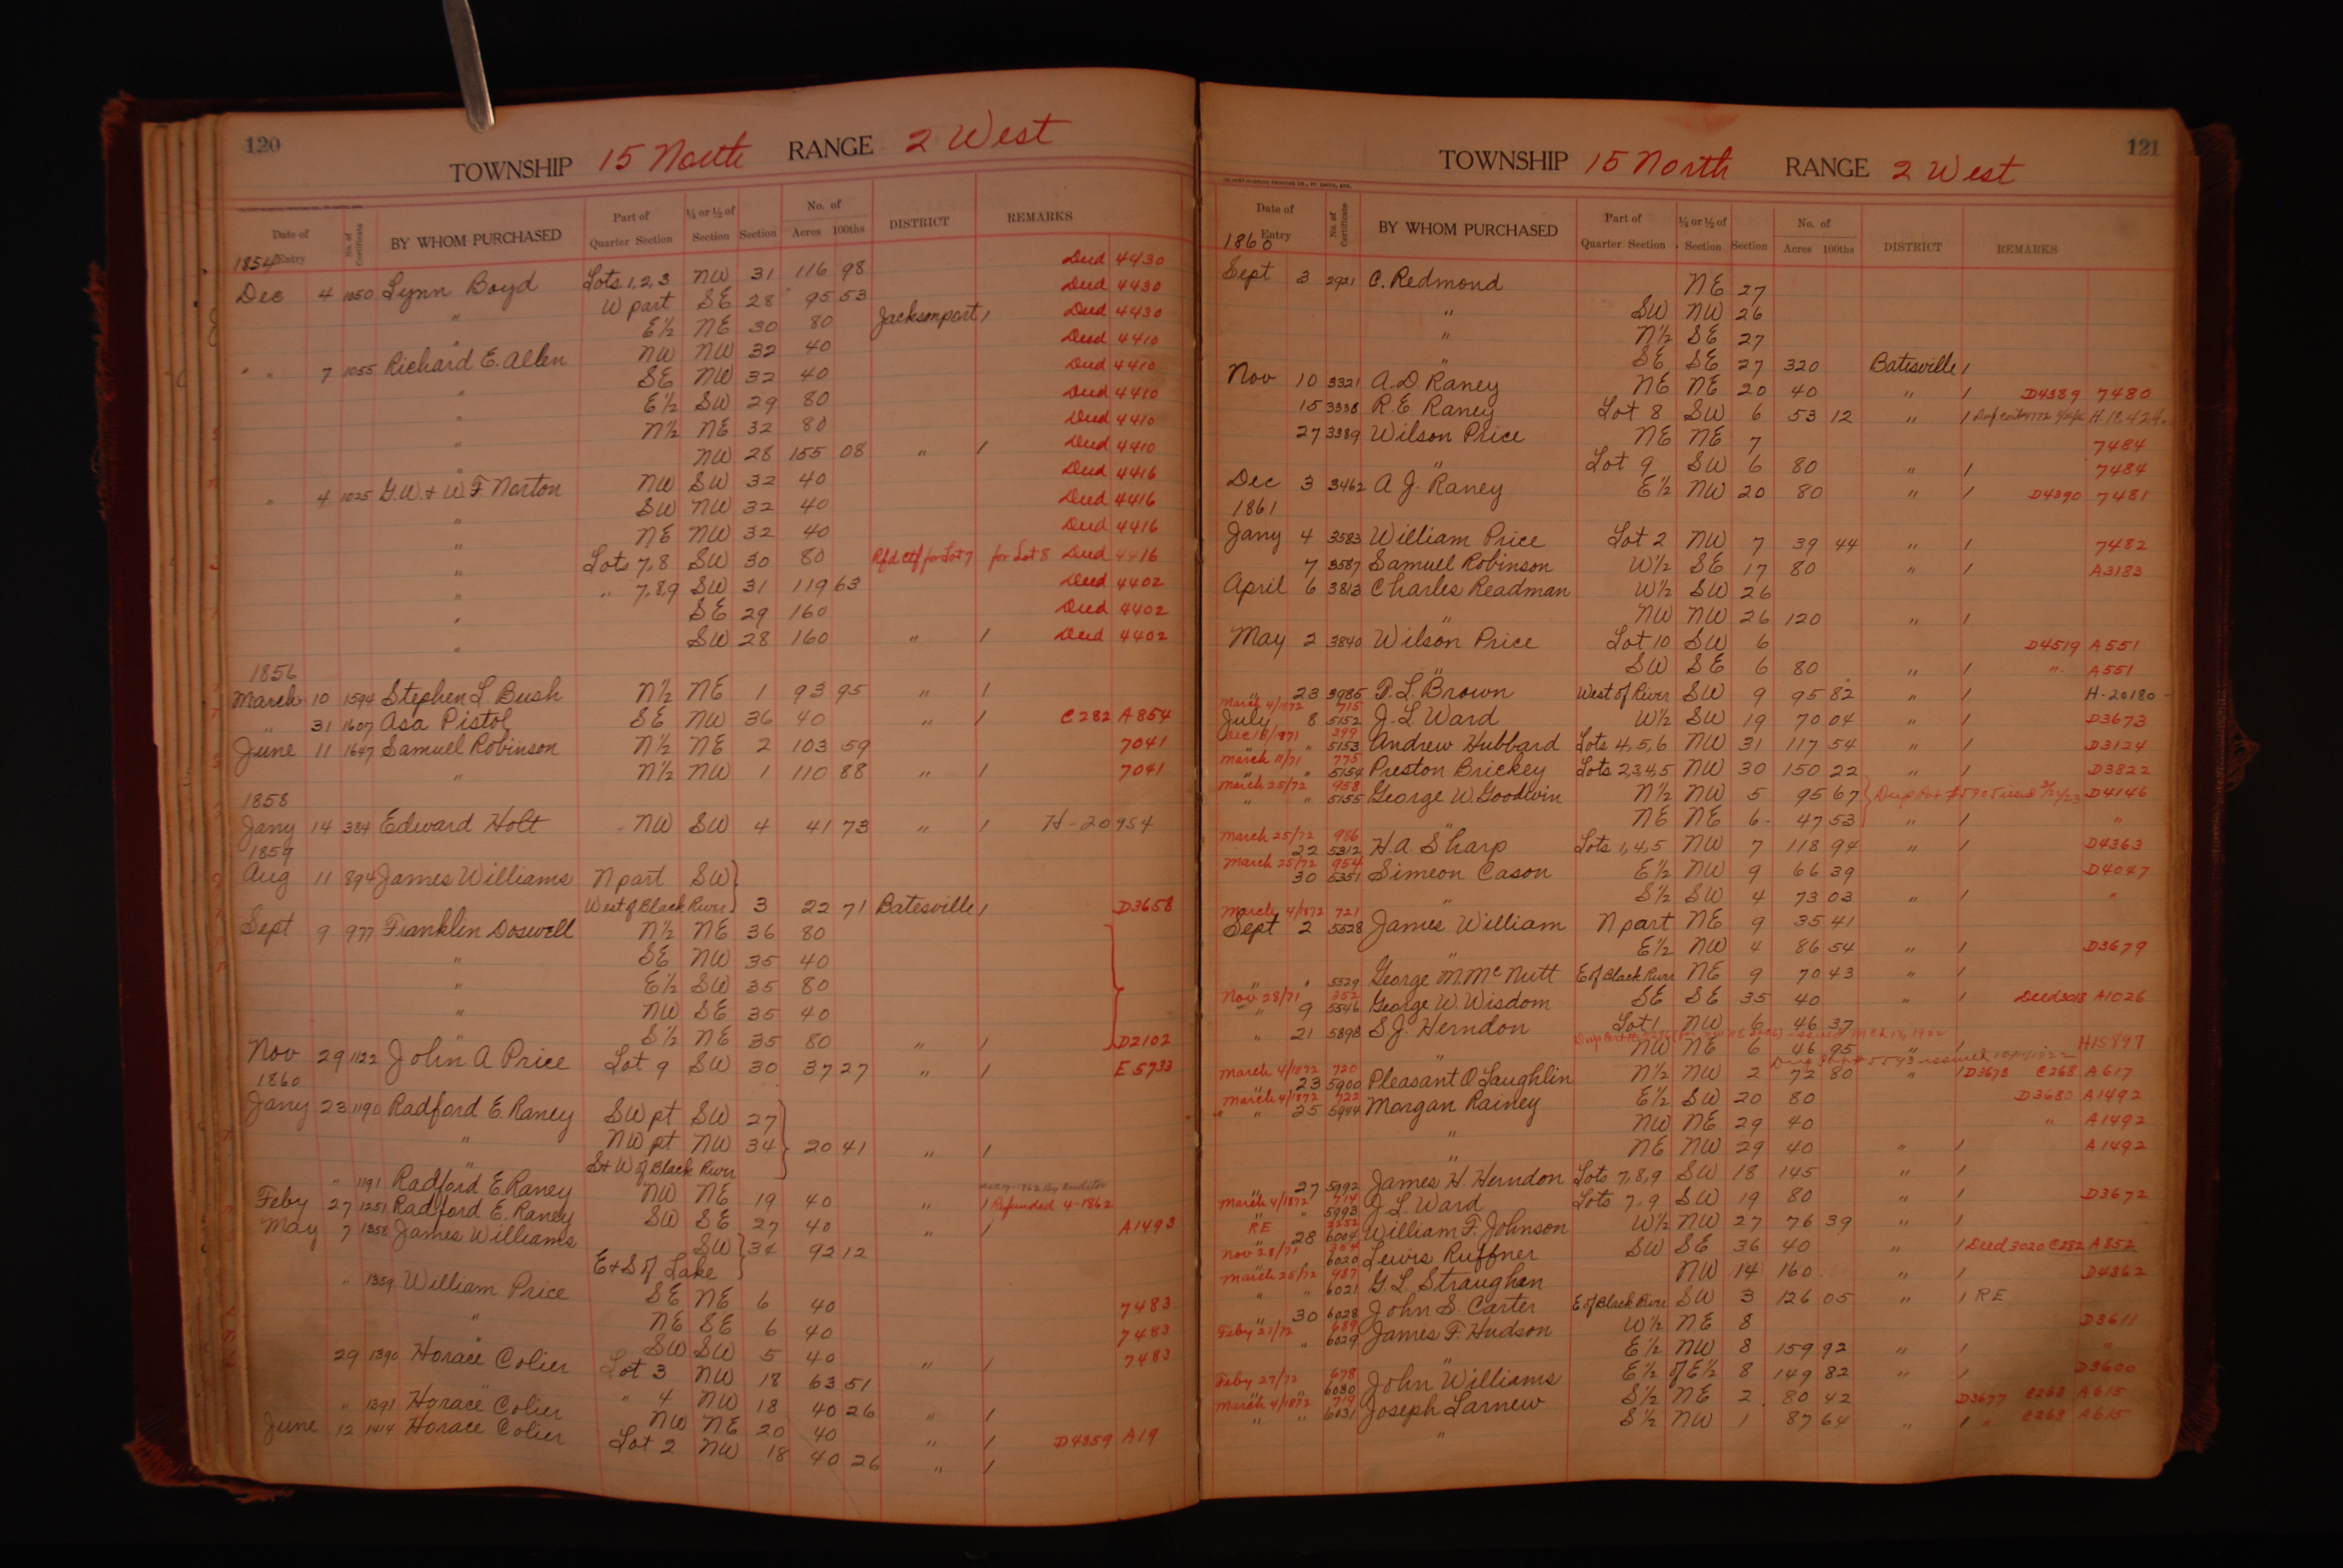 120
TOWNSHIP 15 North RANGE 2 West
Date of Entry No. of Certificate BY WHOM PURCHASED Part of Quarter Section ¼ or ½ of Section Section No. of Acres 100ths DISTRICT REMARKS
1854
Dec 4 1050 Lynn Boyd Lots 1,2,3 NW 31 116 98 Deed 4430
" W part SE 28 95 53 Deed 4430
E½ NE 30 80 Jacksonport / Deed 4430
" " 7 1055 Richard E. Allen NW NW 32 40 Deed 4410
" SE NW 32 40 Deed 4410
" E½ SW 29 80 Deed 4410
" N½ NE 32 80 Deed 4410
" NW 28 155 08 " / Deed 4410
" 4 1025 G.W. & W.F. Norton NW SW 32 40 Deed 4416
" SW NW 32 40 Deed 4416
" NE NW 32 40 Deed 4416
" Lots 7,8 SW 30 80 Rfd ctf for Lot 7 for Lot 8 Deed 4416
" " 7,8,9 SW 31 119 63 Deed 4402
" SE 29 160 Deed 4402
" SW 28 160 " / Deed 4402
1856
March 10 1594 Stephen L Bush N½ NE 1 93 95 " /
" 31 1607 Asa Pistol SE NW 36 40 " / C282 A854
June 11 1647 Samuel Robinson N½ NE 2 103 59 7041
" N½ NW 1 110 88 " / 7041
1858
Jany 14 384 Edward Holt NW SW 4 41 73 " / H-20954
1859
Aug 11 894 James Williams N part SW
West of Black River 3 22 71 Batesville / D3658
Sept 9 977 Franklin Doswell N½ NE 36 80
" SE NW 35 40
" E½ SW 35 80
" NW SE 35 40
" S½ NE 35 80 " / D2102
Nov 29 1122 John A Price Lot 9 SW 30 37 27 " / E5733
1860
Jany 23 1190 Radford E. Raney SW pt SW 27
" NW pt NW 34 20 41 " /
S & W of Black River
" 1191 Radford E Raney NW NE 19 40 " / Refunded 4-1862
Feby 27 1251 Radford E. Raney SW SE 27 40 " / A1493
May 7 1358 James Williams SW 34 92 12
E & S of Lake
" 1359 William Price SE NE 6 40 7483
" NE SE 6 40 7483
" SW SW 5 40 " / 7483
29 1390 Horace Colier Lot 3 NW 18 63 51
" 1391 Horace Colier " 4 NW 18 40 26 " /
June 12 1414 Horace Colier NW NE 20 40 " / D4359 A19
Lot 2 NW 18 40 26 " /
121
TOWNSHIP 15 North RANGE 2 West
Date of Entry No. of Certificate BY WHOM PURCHASED Part of Quarter Section ¼ or ½ of Section Section No. of Acres 100ths DISTRICT REMARKS
1860
Sept 3 2921 C. Redmond NE 27
" SW NW 26
" N½ SE 27
" SE SE 27 320 Batesville /
Nov 10 3321 A.D. Raney NE NE 20 40 " / D4389 7480
15 3338 R.E. Raney Lot 8 SW 6 53 12 " / H-18,424
27 3389 Wilson Price NE NE 7 7484
" Lot 9 SW 6 80 " / 7484
Dec 3 3462 A J. Raney E½ NW 20 80 " / D4390 7481
1861
Jany 4 3583 William Price Lot 2 NW 7 39 44 " / 7482
7 3587 Samuel Robinson W½ SE 17 80 " / A3183
April 6 3813 Charles Readman W½ SW 26
" NW NW 26 120 " /
May 2 3840 Wilson Price Lot 10 SW 6 D4519 A551
" SW SE 6 80 " / " A551
" 23 3985 P.L. Brown West of River SW 9 95 82 " / H-20180
March 4/1872 715
July 8 5152 J. L. Ward W½ SW 19 70 04 " / D3673
Dec 18/1871 399
" " 5153 Andrew Hubbard Lots 4,5,6 NW 31 117 54 " / D3124
March 11/71 775
" " 5154 Preston Brickey Lots 2,3,4,5 NW 30 150 22 " / D3822
March 25/72 958
" " 5155 George W. Goodwin N½ NW 5 95 67 D4146
" NE NE 6 47 53 " / "
March 25/72 986
22 5312 H.A Sharp Lots 1,4,5 NW 7 118 94 " / D4363
March 25/72 954
30 5351 Simeon Cason E½ NW 9 66 39 D4047
" S½ SW 4 73 03 " / "
March 4/1872 721
Sept 2 5528 James William N part NE 9 35 41
" E½ NW 4 86 54 " / D3679
" " 5529 George M. McNutt E of Black River NE 9 70 43 " /
Nov 28/71 352
" 9 5546 George W. Wisdom SE SE 35 40 " / Deed 3018 A1026
" 21 5898 S.J. Herndon Lot 1 NW 6 46 37
" NW NE 6 46 95 " / H15897
March 4/1872 720
23 5900 Pleasant O Laughlin N½ NW 2 72 80 " / D3678 C268 A617
March 4/1872 722
" " 25 5944 Morgan Rainey E½ SW 20 80 D3680 A1492
" NW NE 29 40 " A1492
" NE NW 29 40 " / A1492
" 27 5992 James H. Herndon Lots 7,8,9 SW 18 145 " /
March 4/1872 714
" " 5993 J. L. Ward Lots 7,9 SW 19 80 " / D3672
RE 2252
" 28 6004 William F. Johnson W½ NW 27 76 39 " /
Nov 28/71
" 6020 Lewis Ruffner SW SE 36 40 " / Deed 3020 C282 A852
March 25/72 987
" " 6021 G. L. Straughan NW 14 160 " / D4362
" 30 6028 John S. Carter E of Black River SW 3 126 05 " / RE
Feby 21/72 689
" 6029 James F. Hudson W½ NE 8 D3611
" E½ NW 8 159 92 " / "
Feby 27/72 678
" 6030 John Williams E½ of E½ 8 149 82 " / D3600
March 4/1872 719
" " 6031 Joseph Larnew S½ NE 2 80 42 D3677 C268 A615
" S½ NW 1 87 64 " / " C268 A615